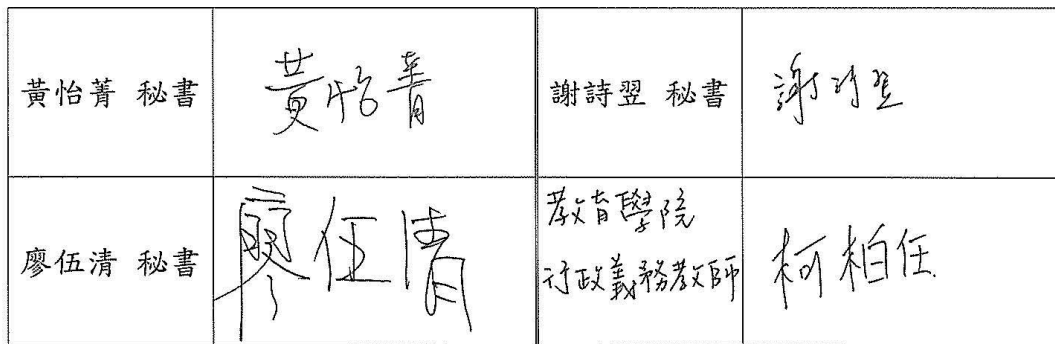 黃怡菁 秘書
黃怡菁
謝詩翌 秘書
謝詩翌
廖伍清 秘書
廖伍清
教育學院
行政義務教師
柯柏任